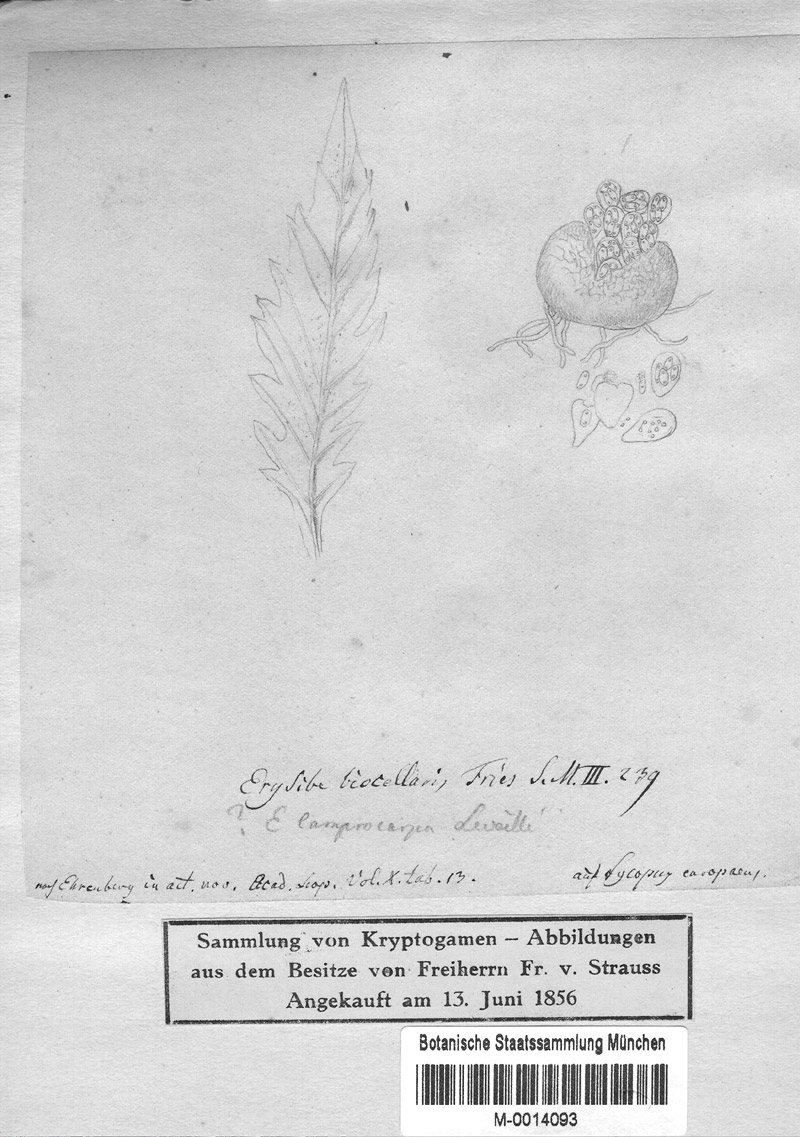 Erysibe biocellaris, Fries S. M. III. 239
? E lamprocarpa Leveillé
nach Ehrenberg in act. nov. Acad. Leop. Vol. X. tab. 13.
auf Lycopus europaeus.
Sammlung von Kryptogamen – Abbildungen
aus dem Besitze von Freiherrn Fr. v. Strauss
Angekauft am 13. Juni 1856
Botanische Staatssammlung München
M-0014093